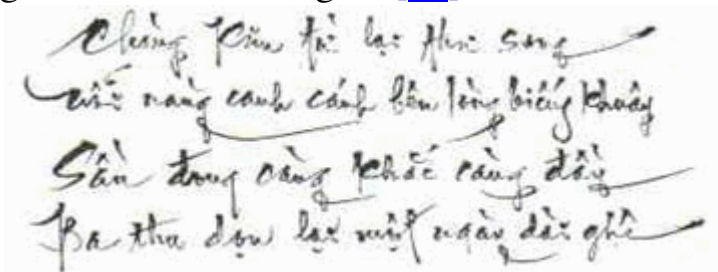 Chàng Kim từ lại thư song
nỗi nàng canh cánh bên lòng biếng khuây
Sầu đong càng khắc càng đầy
Ba thu dọn lại một ngày dài ghê